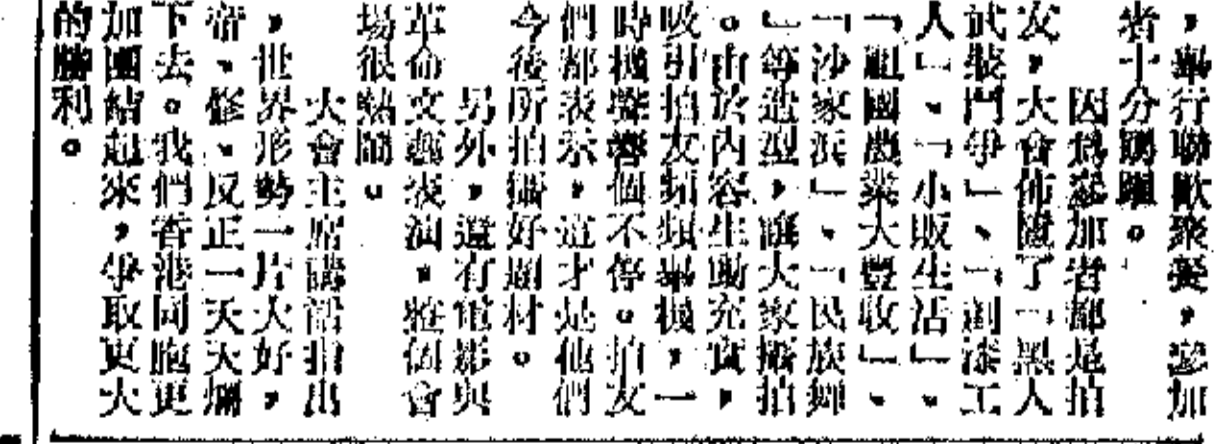 ，舉行聯歡聚餐，參加
者十分踴躍。
因為參加者都是拍
友，大會佈置了「黑人
武裝鬥爭」、「剷漆工
人」、「小販生活」、
「祖國農業大豐收」、
「沙家浜」、「民族舞
」等造型，讓大家攝拍
。由於內容生動充實，
吸引拍友頻頻舉機，一
時機聲響個不停。拍友
們都表示，這才是他們
今後所拍攝好題材。
另外，還有電影與
革命文藝表演。整個會
場很熱鬧。
大會主席講話指出
，世界形勢一片大好，
帝、修、反正一天天爛
下去。我們香港同胞更
加團結起來，爭取更大
的勝利。